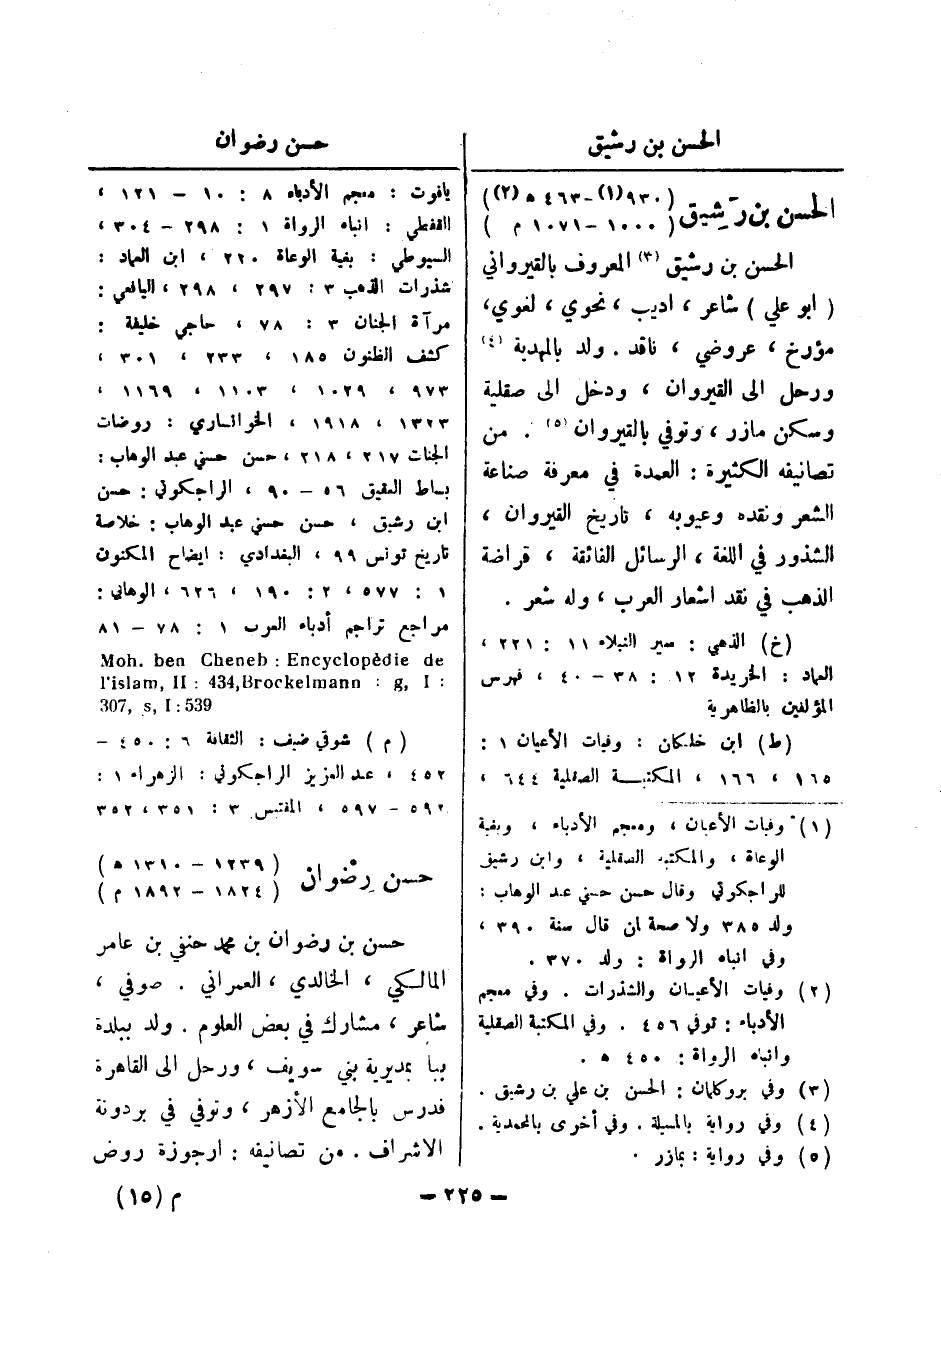 الحسن بن رشيق
الحسن بن رَشِيق (٣٩٠(١)-٤٦٣ ه(٢))
(١٠٠٠ - ١٠٧١ م)
الحسن بن رشيق (٣) المعروف بالقيرواني
( ابو علي ) شاعر ، اديب ، نحوي ، لغوي،
مؤرخ ، عروضي ، ناقد . ولد بالمهدية (٤)
ورحل الى القيروان ، ودخل الى صقلية
وسكن مازر ، وتوفي بالقيروان (٥) . من
تصانيفه الكثيرة : العمدة في معرفة صناعة
الشعر ونقده وعيوبه ، تاريخ القيروان ،
الشذور في اللغة ، الرسائل الفائقة ، قراضة
الذهب في نقد اشعار العرب ، وله شعر .
(خ) الذهبي : سير النبلاء ١١ : ٢٢١ ،
العماد : الخريدة ١٢ : ٣٨ - ٤٠ ، فهرس
المؤلفين بالظاهرية
(ط) ابن خلكان : وفيات الأعيان ١ :
١٦٥ ، ١٦٦ ، المكتبة الصقلية ٦٤٤ ،
(١) وفيات الأعيان ، ومعجم الأدباء ، وبغية
الوعاة ، والمكتبة الصقلية ، وابن رشيق
للراجكوتي وقال حسن حسني عبد الوهاب :
ولد ٣٨٥ ولا صحة ان قال سنة ٣٩٠ ،
وفي انباه الرواة : ولد ٣٧٠ .
(٢) وفيات الأعيان والشذرات . وفي معجم
الأدباء : توفي ٤٥٦ . وفي المكتبة الصقلية
وانباه الرواة : ٤٥٠ ه .
(٣) وفي بروكلمان : الحسن بن علي بن رشيق .
(٤) وفي رواية بالمسيلة . وفي أخرى بالمحمدية .
(٥) وفي رواية : بمازر .
حسن رضوان
ياقوت : معجم الأدباء ٨ : ١٠ - ١٢١ ،
القفطي : انباه الرواة ١ : ٢٩٨ - ٣٠٤ ،
السيوطي : بغية الوعاة ٢٢٠ ، ابن العماد :
شذرات الذهب ٣ : ٢٩٧ ، ٢٩٨ ، اليافعي :
مرآة الجنان ٣ : ٧٨ ، حاجي خليفة :
كشف الظنون ١٨٥ ، ٢٣٣ ، ٣٠١ ،
٩٧٣ ، ١٠٢٩ ، ١١٠٣ ، ١١٦٩ ،
١٣٢٣ ، ١٩١٨ ، الخوانساري : روضات
الجنات ٢١٧ ، ٢١٨ ، حسن حسني عبد الوهاب :
بساط العقيق ٥٦ - ٩٠ ، الراجكوتي : حسن
ابن رشيق ، حسن حسني عبد الوهاب : خلاصة
تاريخ تونس ٩٩ ، البغدادي : ايضاح المكنون
١ : ٥٧٧ ، ٢ : ١٩٠ ، ٦٢٦ ، الوهابي :
مراجع تراجم أدباء العرب ١ : ٧٨ - ٨١
Moh. ben Cheneb : Encyclopédie de
l'islam, II : 434,Brockelmann : g, I :
307, s, I : 539
( م ) شوقي ضيف : الثقافة ٦ : ٤٥٠ -
٤٥٢ ، عبد العزيز الراجكوتي : الزهراء ١ :
٥٩٢ - ٥٩٧ ، المقتبس ٣ : ٣٥١ ، ٣٥٢
حسن رِضْوان (١٢٣٩ - ١٣١٠ ه)
(١٨٢٤ - ١٨٩٢ م)
حسن بن رضوان بن محمد حنفي بن عامر
المالكي ، الخالدي ، العمراني . صوفي ،
شاعر ، مشارك في بعض العلوم . ولد ببلدة
ببا بمديرية بني سويف ، ورحل الى القاهرة
فدرس بالجامع الأزهر ، وتوفي في بردونة
الاشراف . من تصانيفه : ارجوزة روض
- ٢٢٥ -
م (١٥)